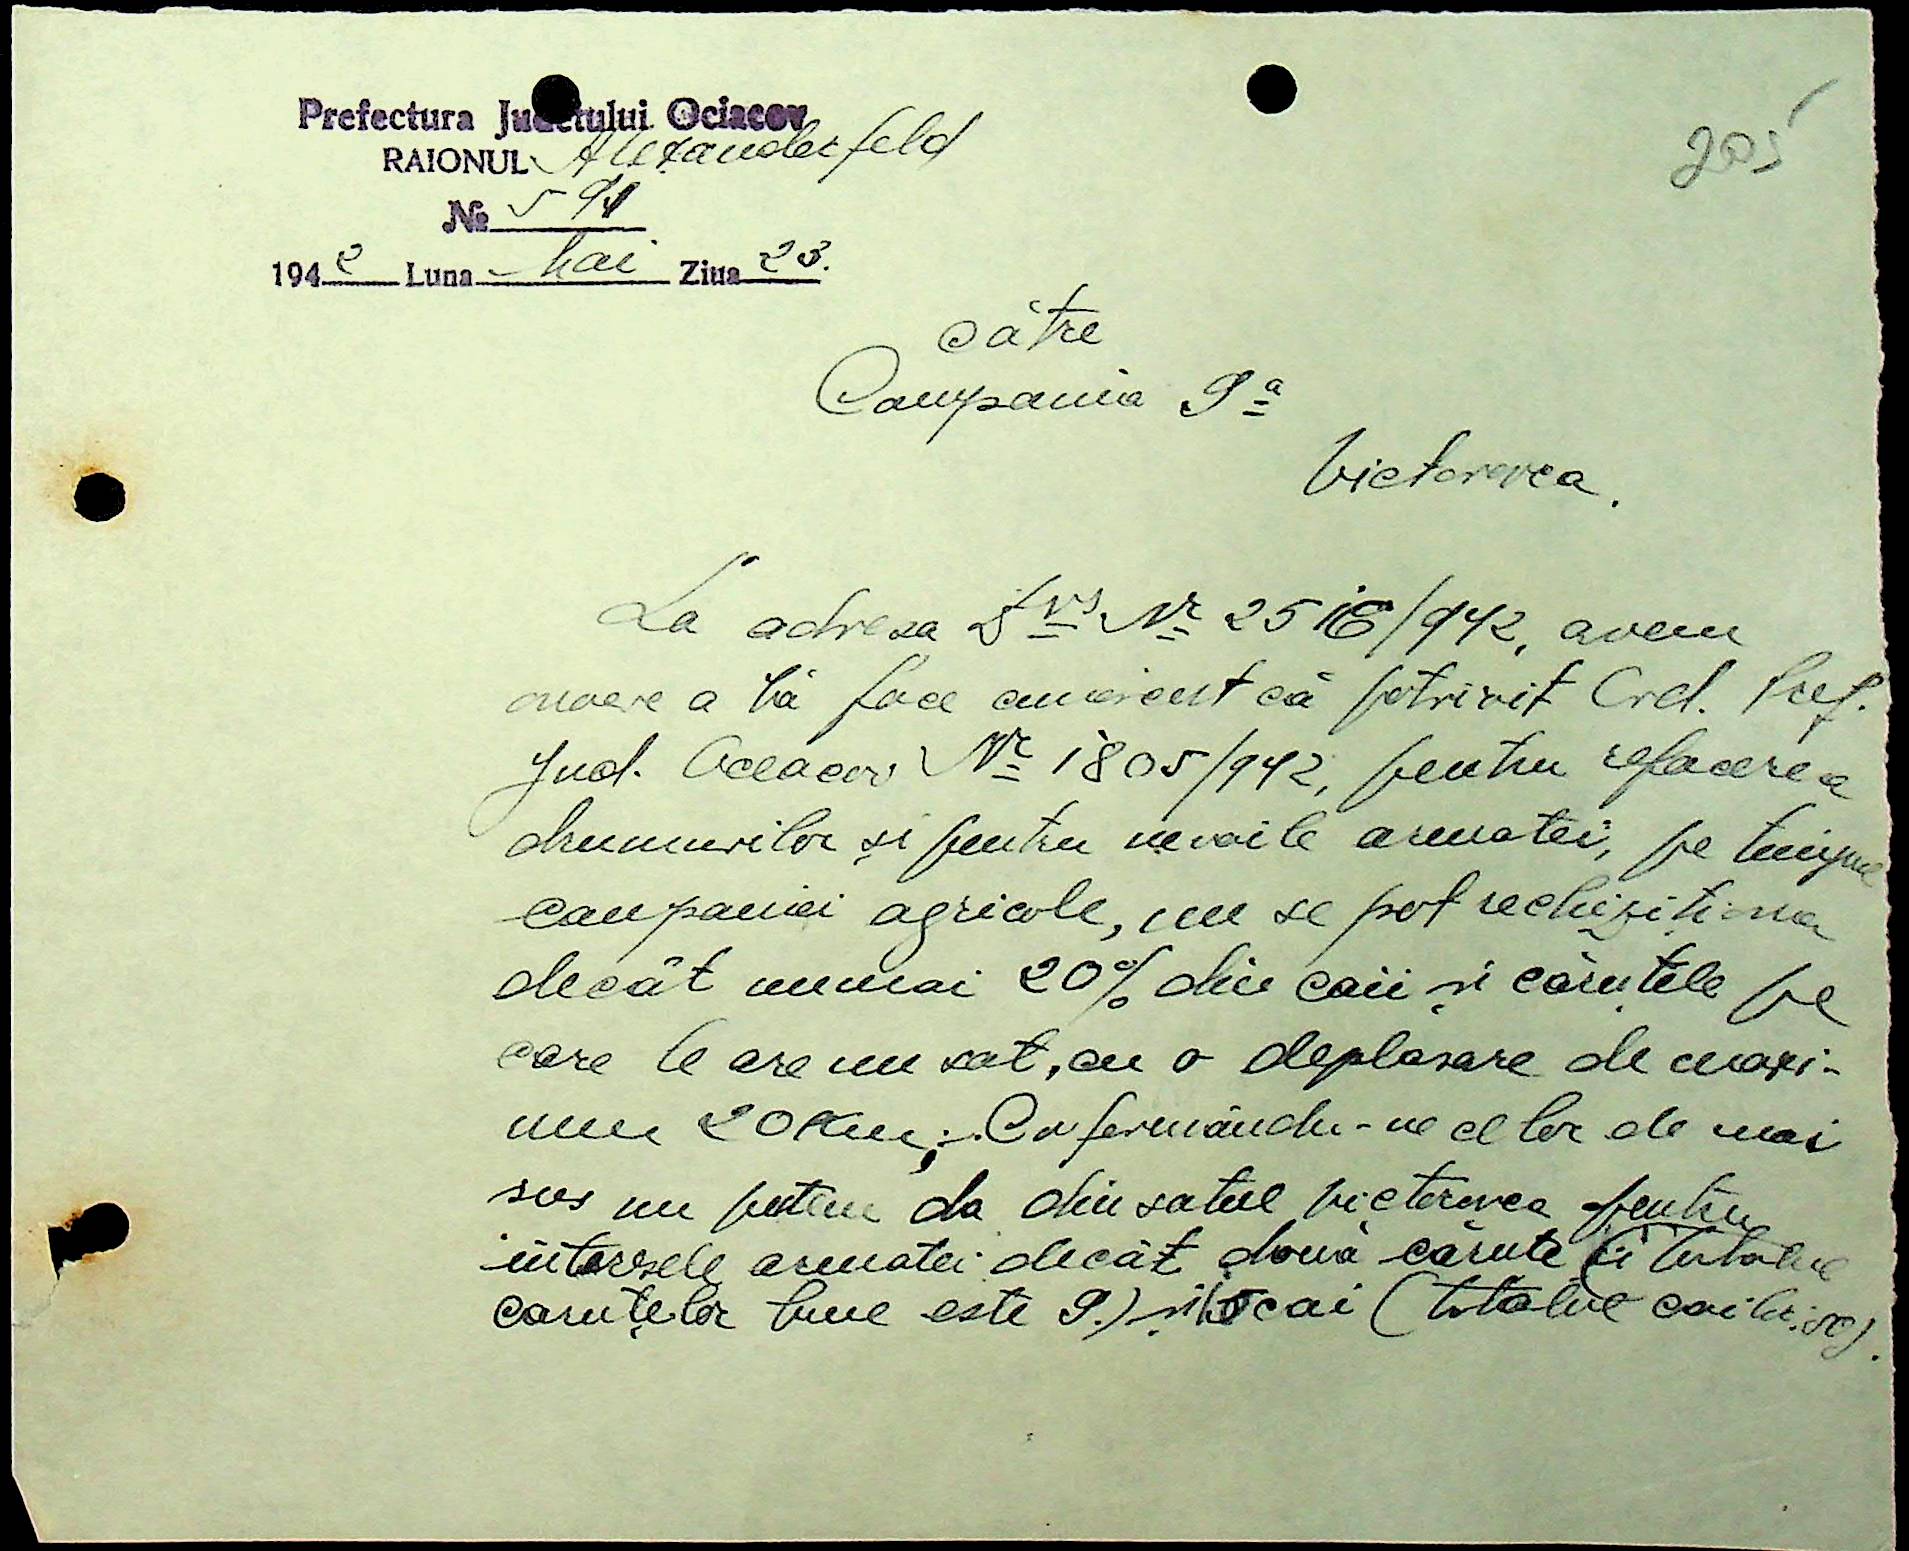 Prefectura Județului Ociacov
RAIONUL Alexanderfeld
№ 591
1942 Luna Mai Ziua 23.
205
către
Compania 9ª
Victorovca.
La adresa Dvs Nr 2516/942, avem
onoare a vă face cunoscut că potrivit Ord. Pref.
Jud. Oceacov Nr 1805/942, pentru refacerea
drumurilor și pentru nevoile armatei, pe timpul
campaniei agricole, nu se pot rechiziționa
decât numai 20% din caii și căruțele pe
care le are un sat, cu o deplasare de maxi-
mum 20 Km; Conformându-ne celor de mai
sus nu putem da din satul Victorovca pentru
interesele armatei decât două căruțe (totalul
caruțelor bune este 9.) și cai (totalul cailor